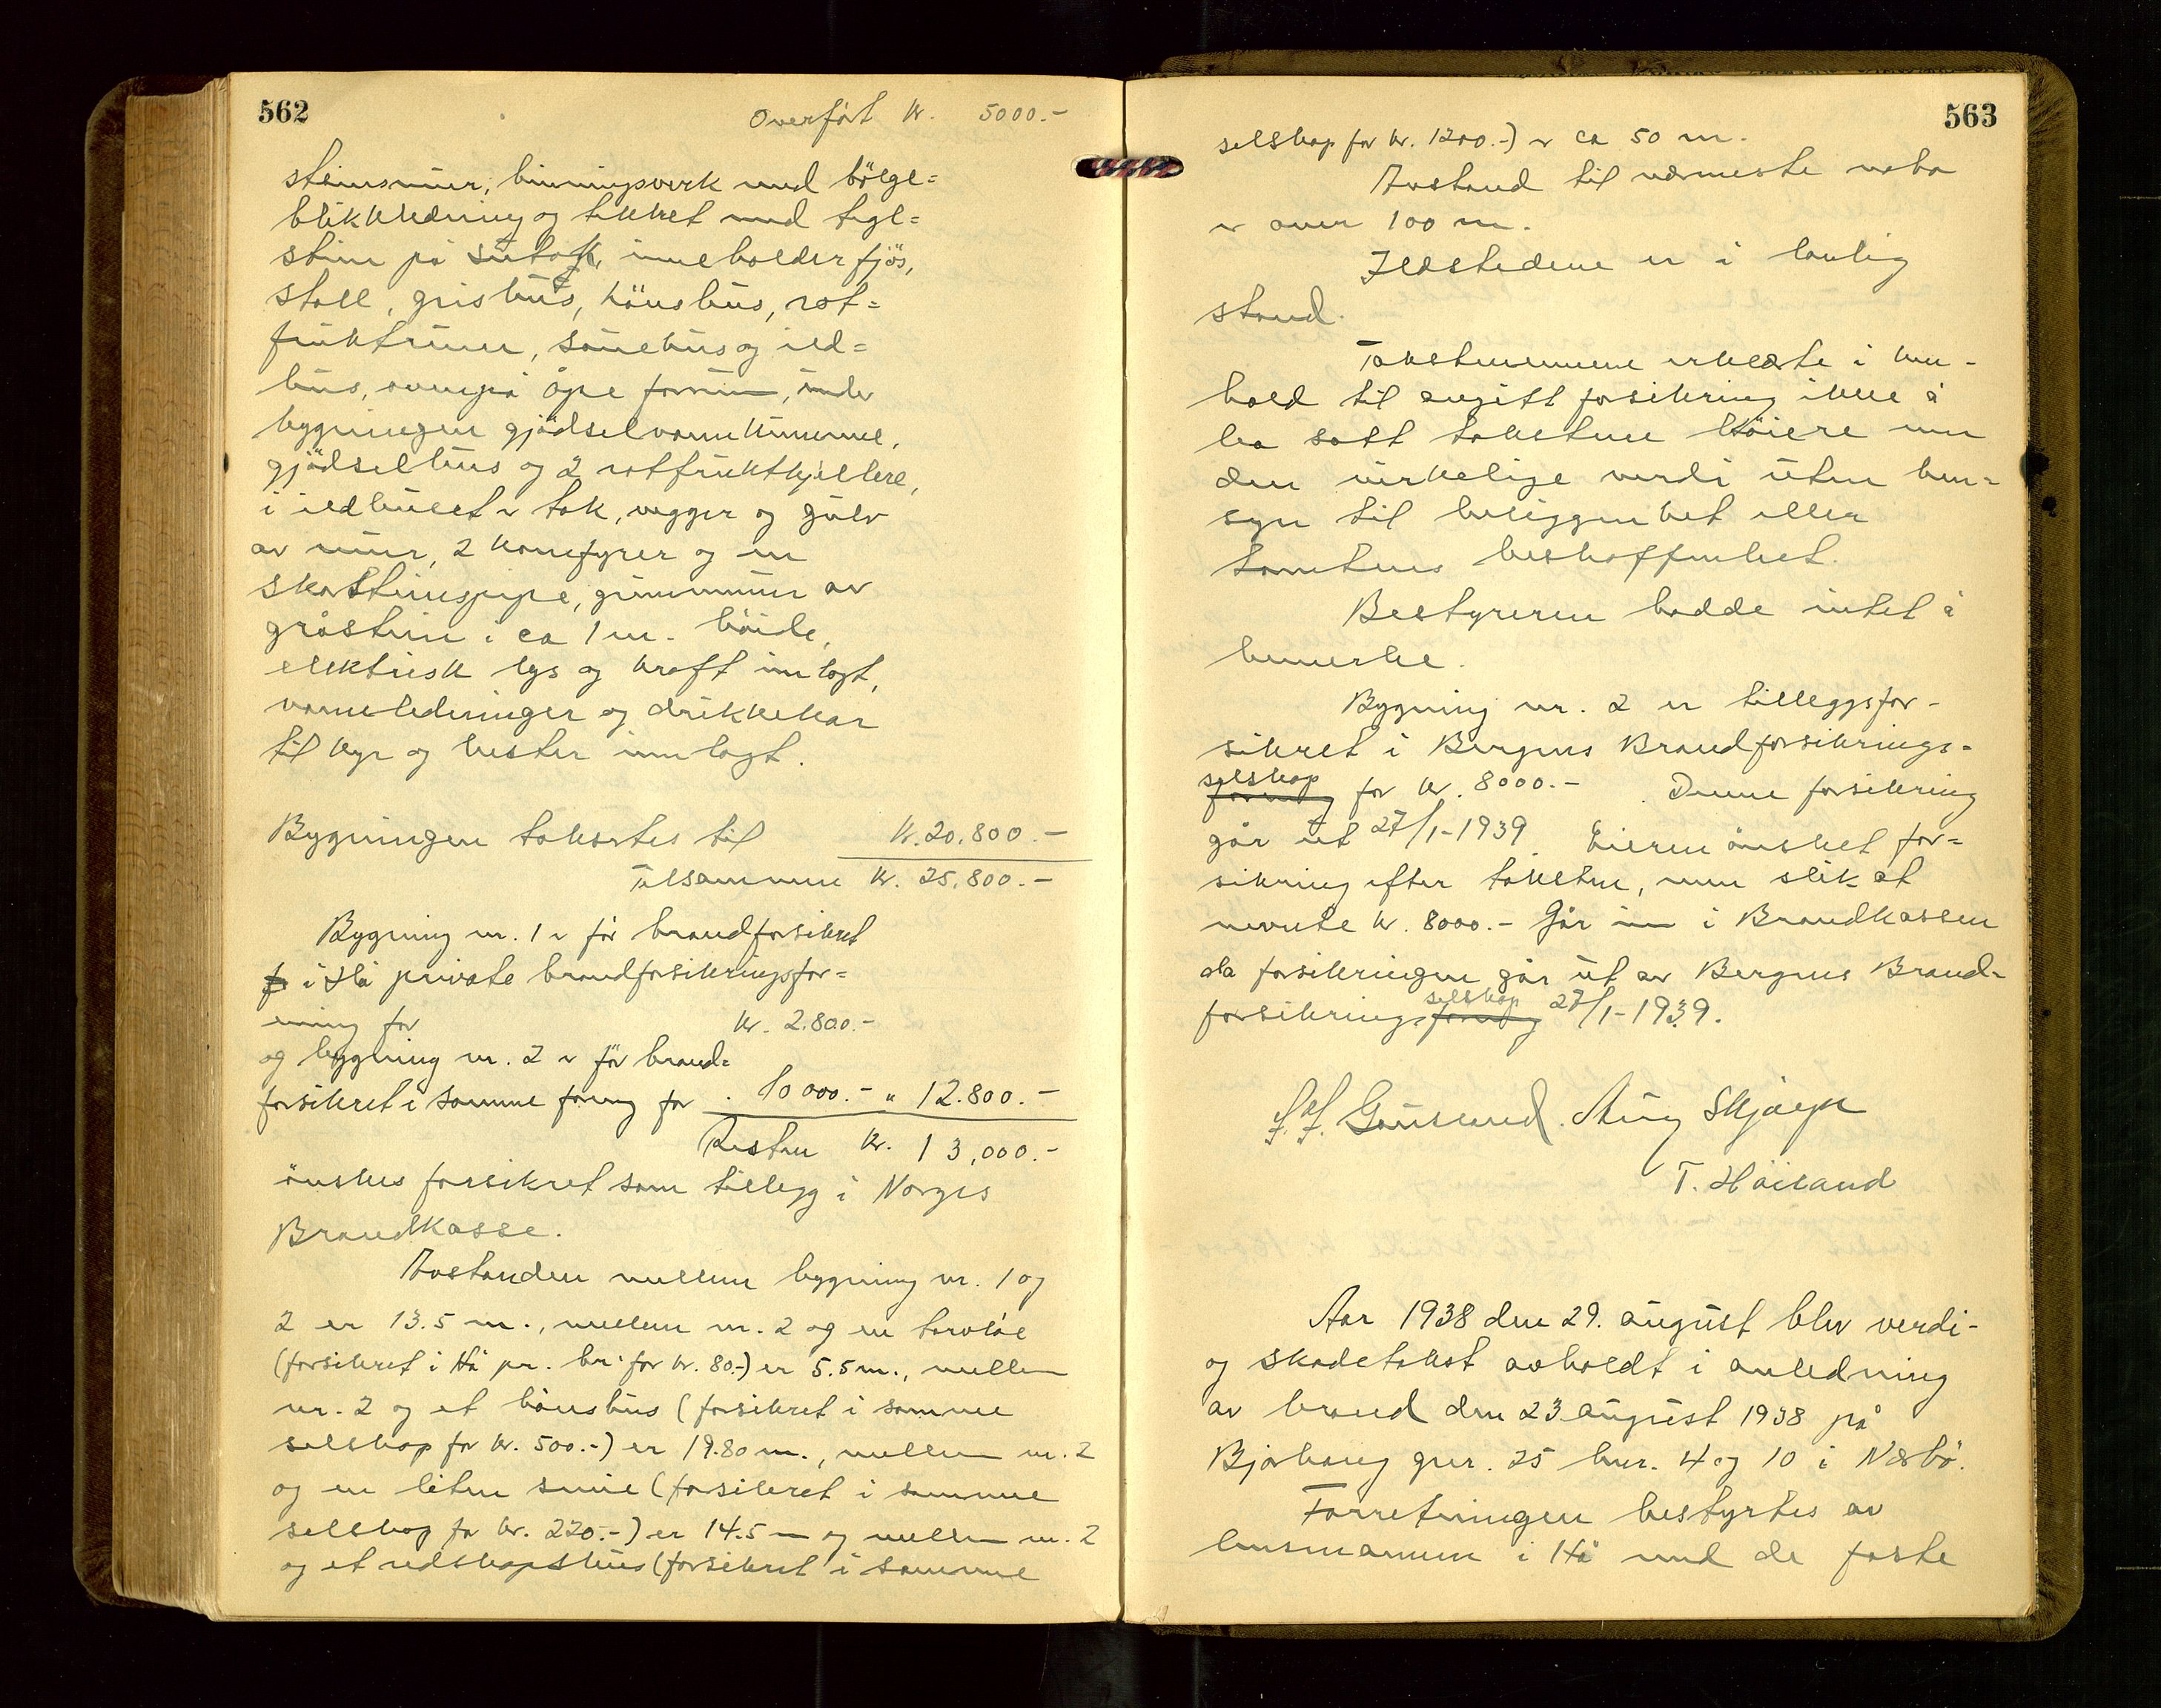 562
Overført kr. 5000.-
steinsmur, binningsverk med bölge=
blikkledning og tekket med tegl=
stein på sutak, inneholder fjös,
stall, grishus, hönshus, rot=
fruktrum, sauehus og ild=
hus, ovenpå åpe forrum, under
bygningen gjödselvannkumme,
gjödselhus og 2 rotfruktkjellere,
i ildhuset er tak, vegger og gulv
av mur, 2 komfyrer og en
skorsteinspipe, grunnmur av
gråstein i ca 1 m. höide,
elektrisk lys og kraft innlagt,
vannledninger og drikkekar
til kyr og hester innlagt.
Bygningen takseres til kr. 20.800.-
Tilsammen kr. 25.800.-
Bygning nr. 1 er för brandforsikret
i Hå private brandforsikringsfor=
ening for kr. 2.800.-
og bygning nr. 2 er för brand=
forsikret i samme foreng for . 10000.- " 12.800.-
Resten kr. 13,000.-
önskes forsikret som tillegg i Norges
Brandkasse.
Avstanden mellem bygning nr. 1 og
2 er 13.5 m., mellem nr. 2 og en torvløe
(forsikret i Hå pr. br. for kr. 80.-) er 5.5 m., mellem
nr. 2 og et hönshus (forsikret i samme
selskap for kr. 500.-) er 19.80 m., mellem nr. 2
og en liten smie (forsikret i samme
selskap for kr. 220.-) er 14.5 m og mellem nr. 2
og et redskapshus (forsikret i samme
563
selskap for kr. 1200.-) er ca 50 m.
Avstand til nærmeste nabo
er over 100 m.
Ildstedene er i lovlig
stand.
Takstmennene erklærte i hen-
hold til avgitt forsikring ikke å
ha satt taksten höiere enn
den virkelige verdi uten hen=
syn til beliggenhet eller
tomtens beskaffenhet.
Bestyreren hadde intet å
bemerke.
Bygning nr. 2 er tilleggsfor-
sikret i Bergens Brandforsikrings=
selskap forening for kr. 8000.- . Denne forsikring
går ut 27/1-1939. Eieren önsket for=
sikring efter taksten, men slik at
nevnte kr. 8000.- går inn i Brandkassen
da forsikringen går ut av Bergens Brand=
forsikrings foreng selskap 27/1-1939.
Gausland. Aug Skjærpe
T. Höiland
Aar 1938 den 29. august blev verdi-
og skadetakst avholdt i anledning
av brand den 23 august 1938 på
Bjorhaug gnr. 25 bnr. 4 og 10 i Nærbö.
Forretningen bestyrtes av
lensmannen i Hå med de faste